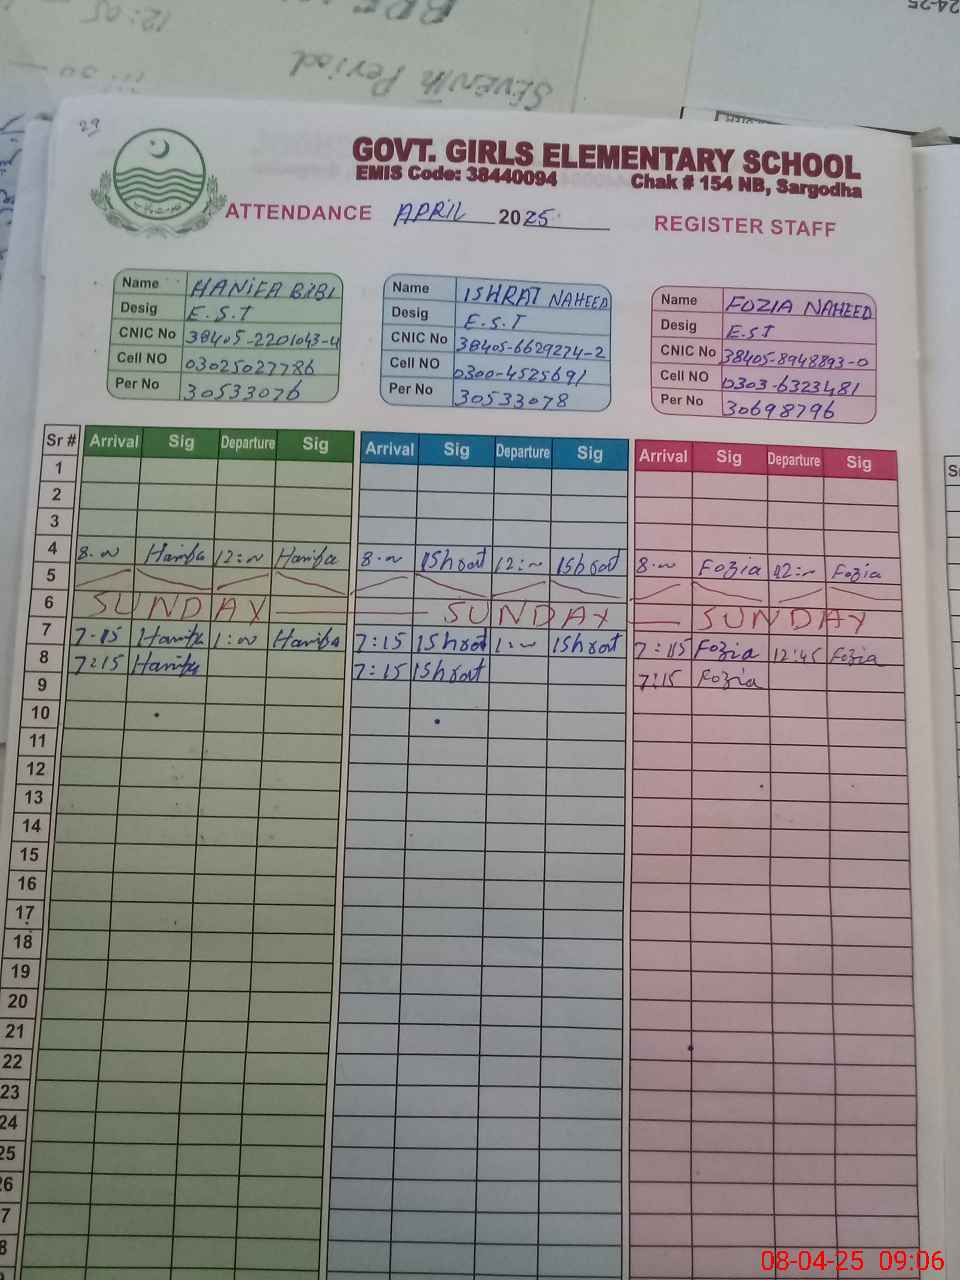 SEVENTH Period
12:05
24-25
29
GOVT. GIRLS ELEMENTARY SCHOOL
EMIS Code: 38440094 Chak # 154 NB, Sargodha
ATTENDANCE APRIL 2025 REGISTER STAFF
Name HANIFA BIBI
Desig E.S.T
CNIC No 38405-2201043-4
Cell NO 03025027786
Per No 30533076
Name ISHRAT NAHEED
Desig E.S.T
CNIC No 38405-6629274-2
Cell NO 0300-4525691
Per No 30533078
Name FOZIA NAHEED
Desig E.ST
CNIC No 38405-8948893-0
Cell NO 0303-6323481
Per No 30698796
Sr # Arrival Sig Departure Sig Arrival Sig Departure Sig Arrival Sig Departure Sig
1
2
3
4 8.00 Hanifa 12:00 Hanifa 8.00 IShrat 12:00 IShrat 8.00 Fozia 12:00 Fozia
5
6 SUNDAY SUNDAY SUNDAY
7 7.15 Hanifa 1:00 Hanifa 7:15 IShrat 1:00 IShrat 7:15 Fozia 12:45 Fozia
8 7:15 Hanifa 7:15 IShrat 7:15 Fozia
9
10
11
12
13
14
15
16
17
18
19
20
21
22
23
24
25
26
7
8
08-04-25 09:06